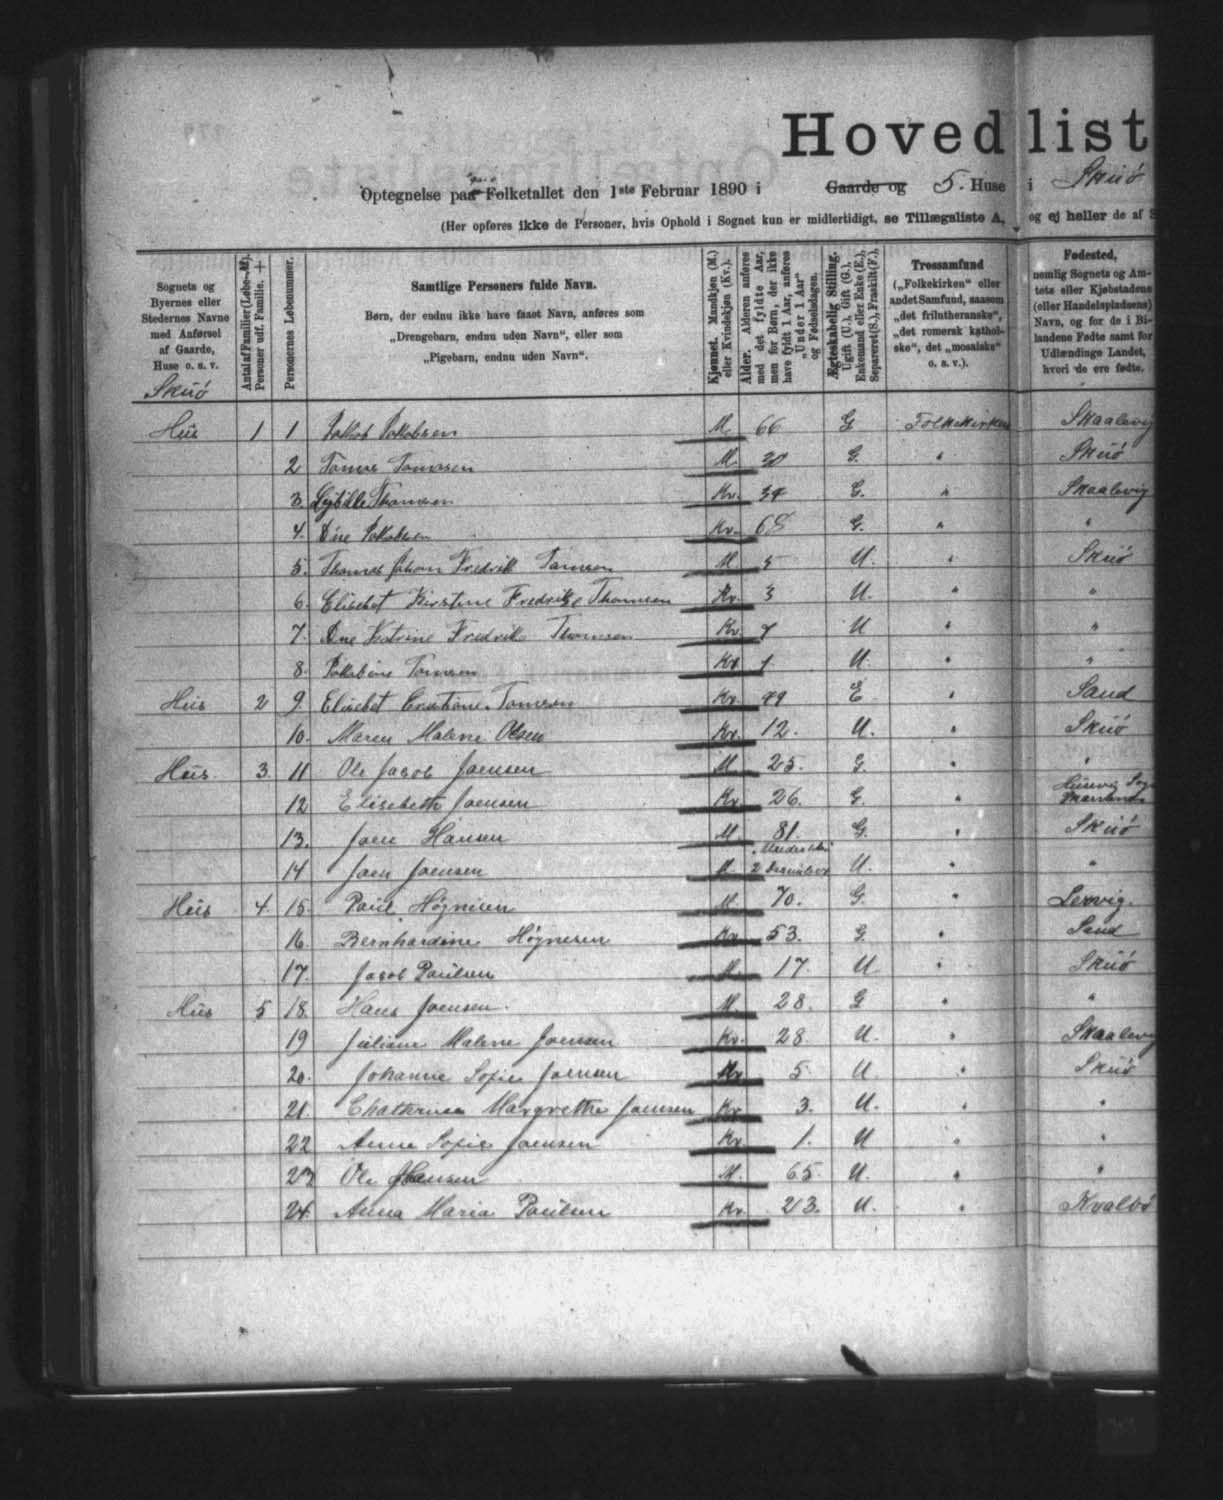 Hovedlist
Optegnelse paa Folketallet den 1ste Februar 1890 i Gaarde og 5. Huse i Skuø
(Her opføres ikke de Personer, hvis Ophold i Sognet kun er midlertidigt, se Tillægsliste A, og ej heller de af S
Sognets og Byernes eller Stedernes Navne med Anførsel af Gaarde, Huse o. s. v.
Antal af Familier (Løbe-№). Personer udf. Familie. +
Personernes Løbenummer.
Samtlige Personers fulde Navn.
Børn, der endnu ikke have faaet Navn, anføres som „Drengebarn, endnu uden Navn“, eller som „Pigebarn, endnu uden Navn“.
Kjønnet. Mandkjøn (M.) eller Kvindekjøn (Kv.).
Alder. Alderen anføres med det fyldte Aar, men for Børn, der ikke have fyldt 1 Aar, anføres „Under 1 Aar“ og Fødselsdagen.
Ægteskabelig Stilling. Ugift (U.), Gift (G.), Enkemand eller Enke (E.), Separeret (S.), Fraskilt (F.).
Trossamfund („Folkekirken“ eller andet Samfund, saasom „det frilutheranske“, „det romersk katholske“, det „mosaiske“ o. s. v.).
Fødested, nemlig Sognets og Amtets eller Kjøbstadens (eller Handelspladsens) Navn, og for de i Bilandene Fødte samt for Udlændinge Landet, hvori de ere fødte.
Skuø
Hus 1 1 Jakob Jakobsen M 66 G Folkekirken Skaalevig
2 Tomas Tomasen M. 30 G. " Skuø
3. Thomsen Kv. 34 G. " Skaalevig
4. Ane Jakobsen Kv. 68 G. " "
5. Thomas Johan Fredrik Tomsen M 5 U. " Skuø
6. Elisebet Kirstine Fredrikke Thomsen Kv. 3 U. " "
7. Ane Katrine Fredrik Thomsen Kv. U " "
8. Jakobine Tomsen Kv 1 U. " "
Hus 2 9. Elisebet Cristiane Tomsen Kv. 49 E " Sand
10. Maren Malene Olsen Kv. 12. U. " Skuø
Hus. 3. 11 Ole Jacob Joensen M 25. G. " "
12 Elisebeth Joensen Kv 26. G. " Husevig Sog
13. Joen Hansen M. 81. G. " Skuø
14 Joen Joensen M. 2 December U. " "
Hus 4. 15. Paul Høgnisen M. 70. G. " Lervig.
16. Bernhardine Høgnesen Kv 53. G. " Sand
17. Jacob Paulsen M. 17. U " Skuø
Hus 5 18. Hans Joensen. M. 28. G " "
19 Juliane Malene Joensen Kv. 28. U. " Skaalevig
20. Johanne Sofie Joensen Kv 5. U " Skuø
21. Chathrina Margrethe Joensen Kv. 3. U. " "
22 Anne Sofie Joensen Kv. 1. U " "
23 Ole Hansen M. 65. U. " "
24. Anna Maria Poulsen Kv. 23. U. " Kvalbø